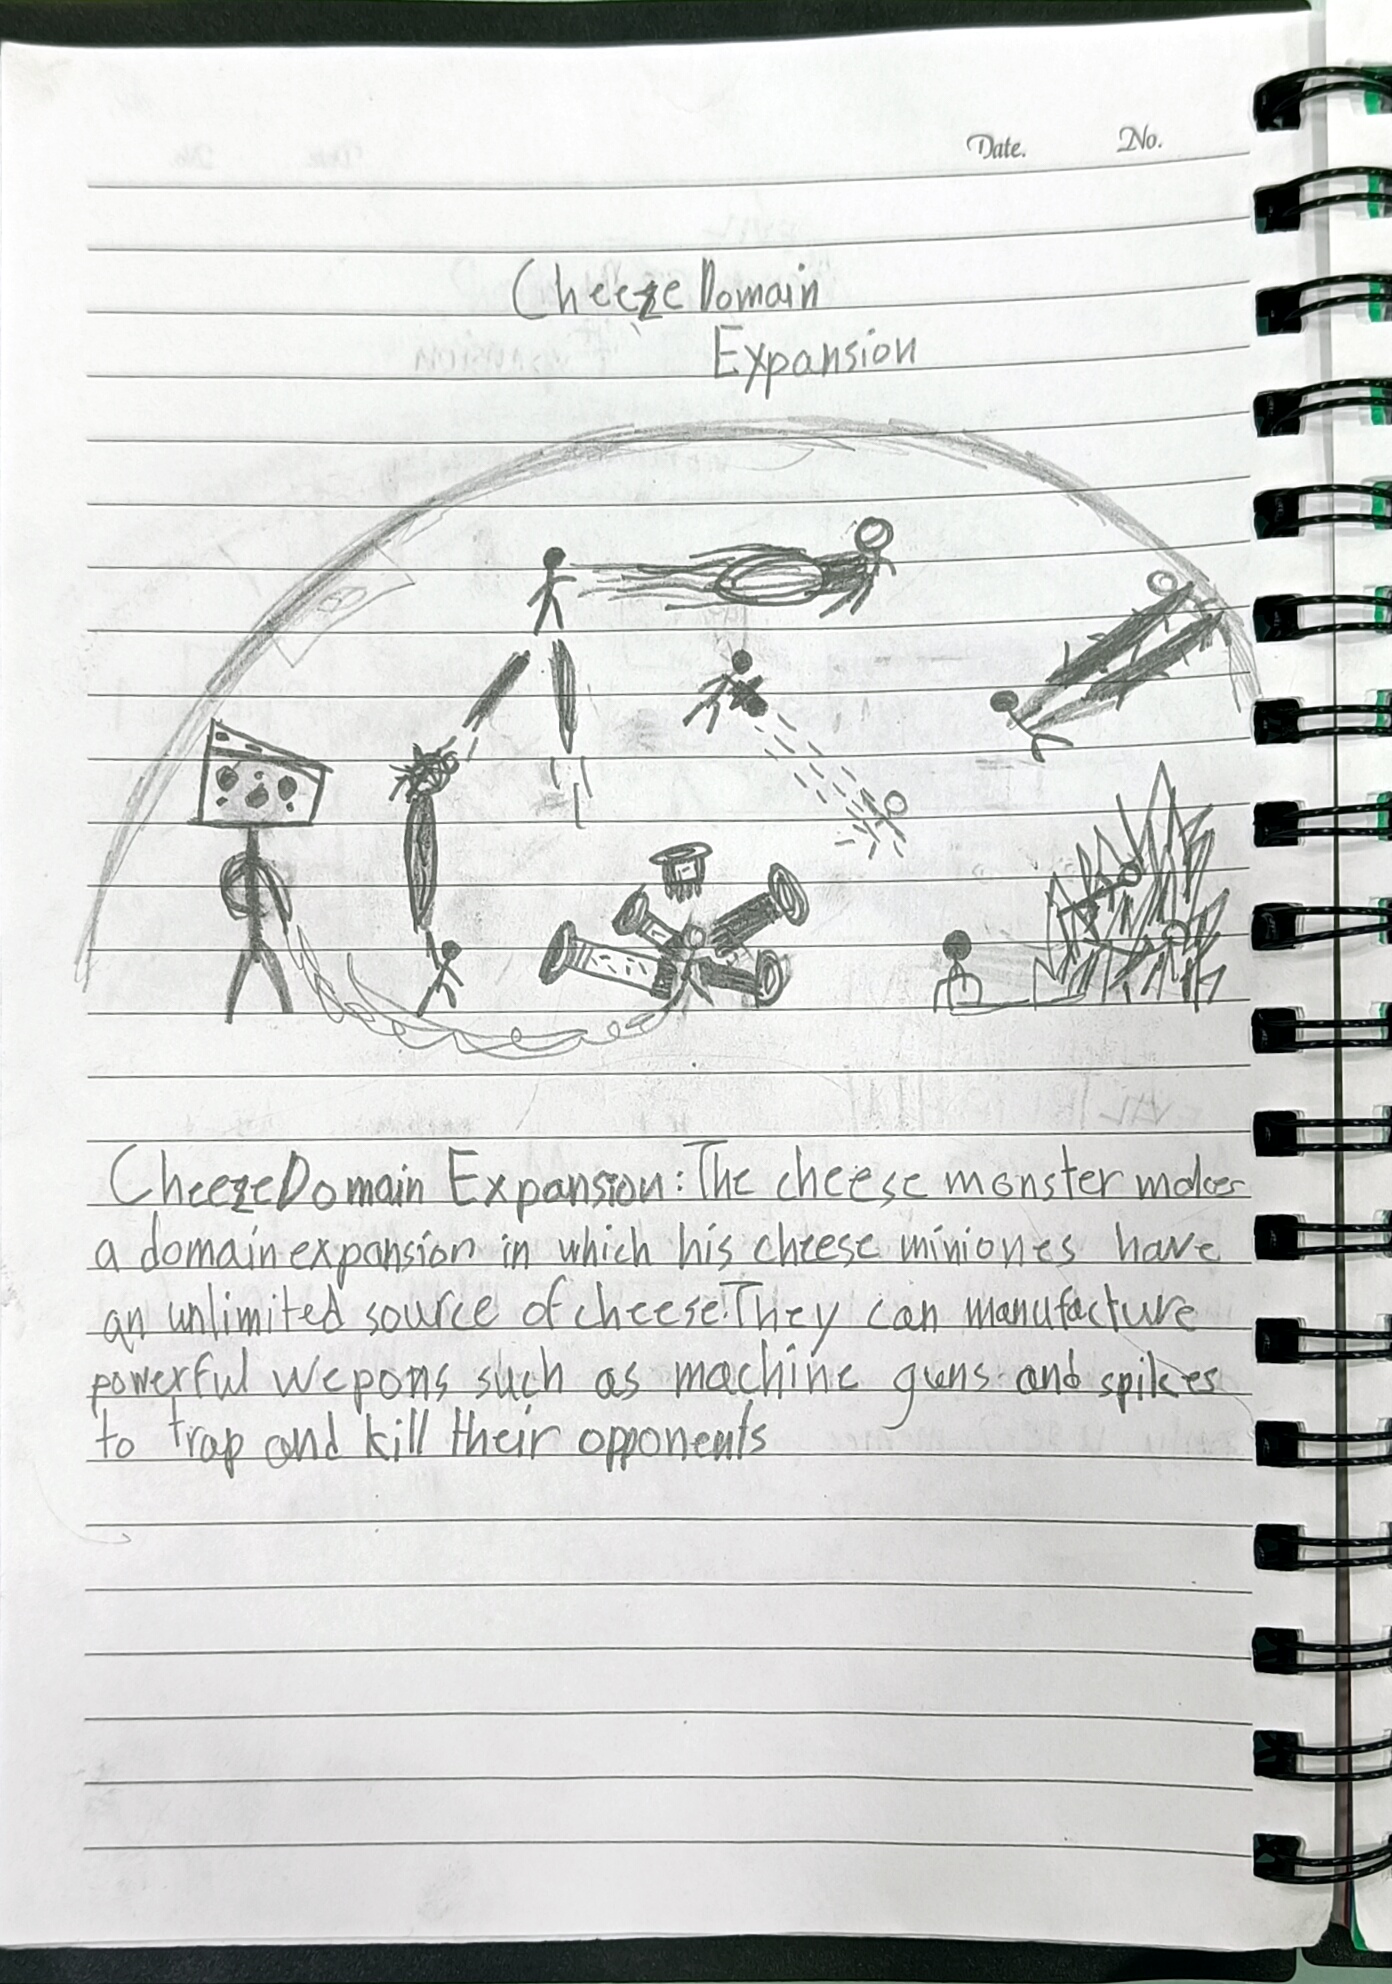 Date. No.
Cheeze Domain
Expansion
Cheeze Domain Expansion: The cheese monster makes
a domain expansion in which his cheese miniones have
an unlimited source of cheese. They can manufacture
powerful wepons such as machine guns and spikes
to trap and kill their opponents